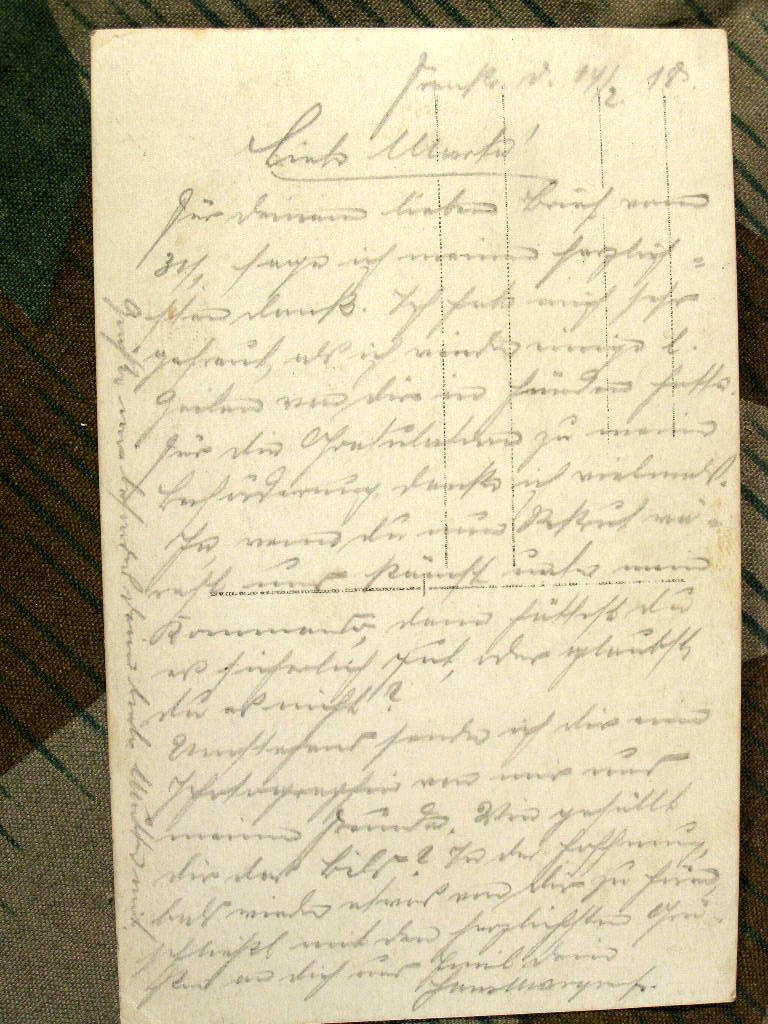 d. 14/2. 18.
Liebe Martha!
Für Deinen lieben Brief vom
31/1. sage ich meinen herzlich=
sten Dank. Ich habe mich sehr
gefreut, als ich wieder einige l.
Zeilen von dir in Händen hatte.
Für die Gratulation zu meiner
Beförderung danke ich vielmals.
Ja, wenn du nun Rekrut wä=
rest und unter mein
Kommando, dann hättest du
es sicherlich gut, oder glaubst
du es nicht?
sende ich dir eine
Photographie von mir und
meinem Freunde. Wie gefällt
dir das Bild? In der Hoffnung,
bald wieder etwas von dir zu hören,
schließt mit den herzlichsten Grü=
ßen an dich und dein